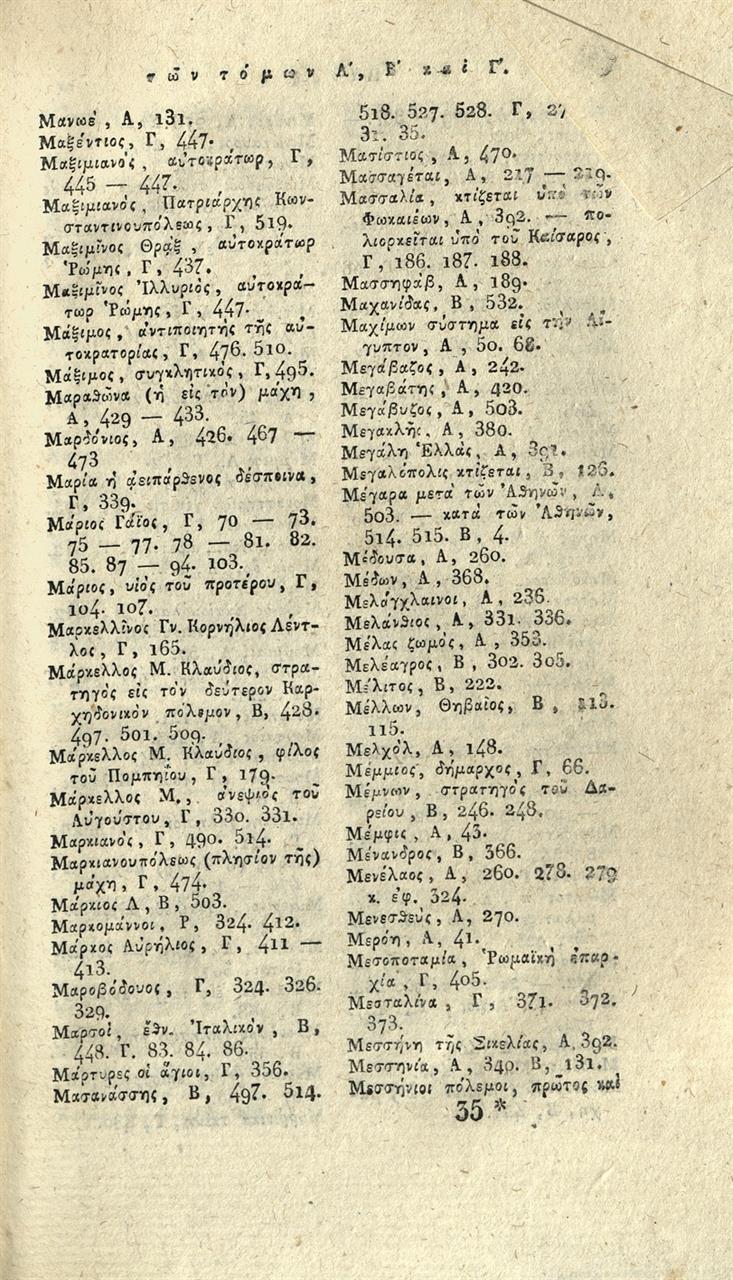 τῶν τόμων Α΄, Β΄ καὶ Γ΄.
Μανωέ, Α, 131.
Μαξέντιος, Γ, 447.
Μαξιμιανός, αὐτοκράτωρ, Γ,
445 — 447.
Μαξιμιανός, Πατριάρχης Κων-
σταντινουπόλεως, Γ, 519.
Μαξιμῖνος Θρᾲξ, αὐτοκράτωρ
Ῥώμης, Γ, 437.
Μαξιμῖνος Ἰλλυριός, αὐτοκρά-
τωρ Ῥώμης, Γ, 447.
Μάξιμος, ἀντιποιητής τῆς αὐ-
τοκρατορίας, Γ, 476. 510.
Μάξιμος, συγκλητικός, Γ, 495.
Μαραθῶνα (ἡ εἰς τὸν) μάχη,
Α, 429 — 433.
Μαρδόνιος, Α, 426. 467 —
473
Μαρία ἡ ἀειπάρθενος δέσποινα,
Γ, 339.
Μάριος Γάϊος, Γ, 70 — 73.
75 — 77. 78 — 81. 82.
85. 87 — 94. 103.
Μάριος, υἱὸς τοῦ προτέρου, Γ,
104. 107.
Μαρκελλῖνος Γν. Κορνήλιος Λέντ-
λος, Γ, 165.
Μάρκελλος Μ. Κλαύδιος, στρα-
τηγὸς εἰς τὸν δεύτερον Καρ-
χηδονικὸν πόλεμον, Β, 428.
497. 501. 509.
Μάρκελλος Μ. Κλαύδιος, φίλος
τοῦ Πομπηΐου, Γ, 179.
Μάρκελλος Μ., ἀνεψιὸς τοῦ
Αὐγούστου, Γ, 330. 331.
Μαρκιανός, Γ, 490. 514.
Μαρκιανουπόλεως (πλησίον τῆς)
μάχη, Γ, 474.
Μάρκιος Λ, Β, 503.
Μαρκομάννοι, Ρ, 324. 412.
Μάρκος Αὐρήλιος, Γ, 411 —
413.
Μαροβόδουος, Γ, 324. 326.
329.
Μαρσοί, ἔθν. Ἰταλικόν, Β,
448. Γ. 83. 84. 86.
Μάρτυρες οἱ ἅγιοι, Γ, 356.
Μασανάσσης, Β, 497. 514.
518. 527. 528. Γ, 27
31. 35.
Μασίστιος, Α, 470.
Μασσαγέται, Α, 217 — 219.
Μασσαλία, κτίζεται ὑπὸ τῶν
Φωκαιέων, Α, 392. — πο-
λιορκεῖται ὑπὸ τοῦ Καίσαρος,
Γ, 186. 187. 188.
Μασσηφάβ, Α, 189.
Μαχανίδας, Β, 532.
Μαχίμων σύστημα εἰς τὴν Αἴ-
γυπτον, Α, 50. 68.
Μεγάβαζος, Α, 242.
Μεγαβάτης, Α, 420.
Μεγάβυζος, Α, 503.
Μεγακλῆς, Α, 380.
Μεγάλη Ἑλλάς, Α, 391.
Μεγαλόπολις κτίζεται, Β, 126.
Μέγαρα μετὰ τῶν Ἀθηνῶν, Α,
503. — κατὰ τῶν Ἀθηνῶν,
514. 515. Β, 4.
Μέδουσα, Α, 260.
Μέδων, Α, 368.
Μελάγχλαινοι, Α, 236.
Μελάνθιος, Α, 331. 336.
Μέλας ζωμός, Α, 353.
Μελέαγρος, Β, 302. 305.
Μέλιτος, Β, 222.
Μέλλων, Θηβαῖος, Β, 113.
115.
Μελχόλ, Α, 148.
Μέμμιος, δήμαρχος, Γ, 66.
Μέμνων, στρατηγὸς τοῦ Δα-
ρείου, Β, 246. 248.
Μέμφις, Α, 43.
Μένανδρος, Β, 366.
Μενέλαος, Α, 260. 278. 279
κ. ἐφ. 324.
Μενεσθεύς, Α, 270.
Μερόη, Α, 41.
Μεσοποταμία, Ῥωμαϊκὴ ἐπαρ-
χία, Γ, 405.
Μεσταλίνα, Γ, 371. 372.
373.
Μεσσήνη τῆς Σικελίας, Α, 392.
Μεσσηνία, Α, 340. Β, 131.
Μεσσήνιοι πόλεμοι, πρῶτος καὶ
35 *